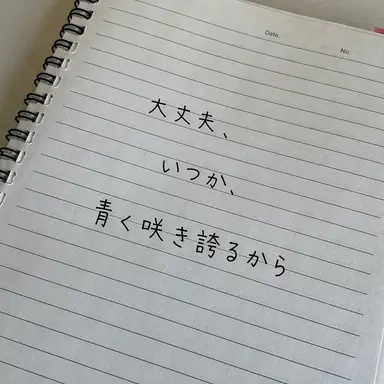 Date.
No.
大丈夫、
いつか、
青く咲き誇るから